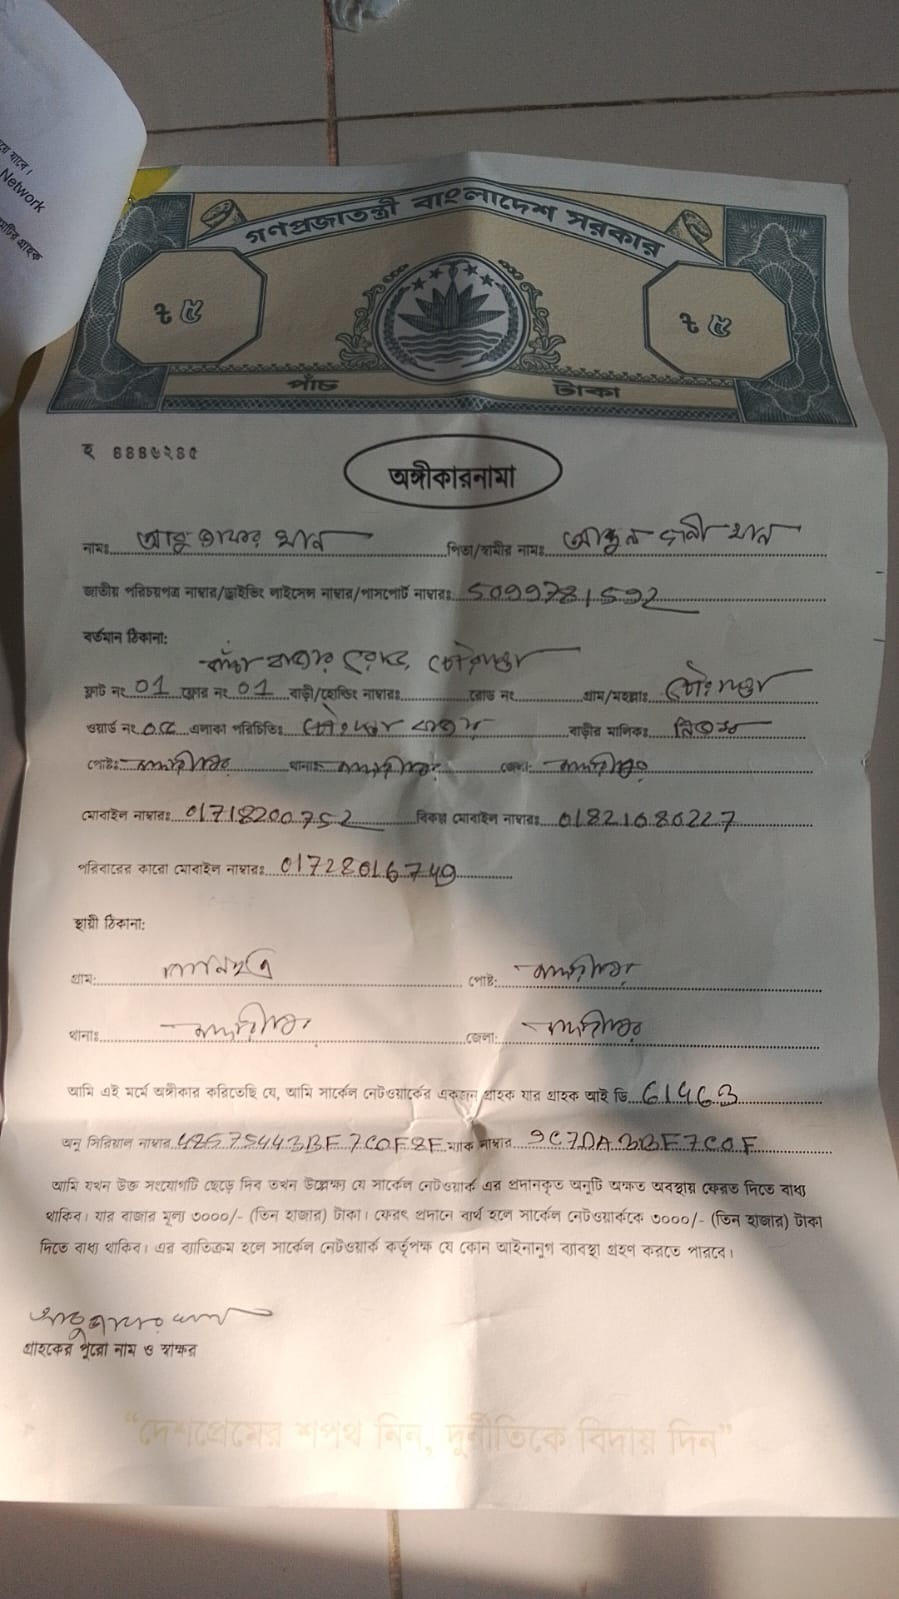 য়ে যাবে।
Network
গণপ্রজাতন্ত্রী বাংলাদেশ সরকার
৳ ৫ ৳ ৫
পাঁচ টাকা
হ ৪৪৪৬২৪৫
অঙ্গীকারনামা
নামঃ আবু জাফর খান পিতা/স্বামীর নামঃ আব্দুল গনী খান
জাতীয় পরিচয়পত্র নাম্বার/ড্রাইভিং লাইসেন্স নাম্বার/পাসপোর্ট নাম্বারঃ 5099781592
বর্তমান ঠিকানা:
কাঁচা বাজার রোড,
ফ্লাট নং 01 ফ্লোর নং 01 বাড়ী/হোল্ডিং নাম্বারঃ রোড নং গ্রাম/মহল্লাঃ
ওয়ার্ড নং এলাকা পরিচিতিঃ বাজার বাড়ীর মালিকঃ নিজস্ব
পোষ্টঃ থানাঃ জেলা:
মোবাইল নাম্বারঃ 01718200752 বিকল্প মোবাইল নাম্বারঃ 01821080227
পরিবারের কারো মোবাইল নাম্বারঃ 01728016749
স্থায়ী ঠিকানা:
গ্রাম: পোষ্ট:
থানাঃ জেলা:
আমি এই মর্মে অঙ্গীকার করিতেছি যে, আমি সার্কেল নেটওয়ার্কের একজন গ্রাহক যার গ্রাহক আই ডি 61463
অনু সিরিয়াল নাম্বার 48575443BF7C0F8F ম্যাক নাম্বার 9C7DA3BF7C0F
আমি যখন উক্ত সংযোগটি ছেড়ে দিব তখন উল্লেক্ষ্য যে সার্কেল নেটওয়ার্ক এর প্রদানকৃত অনুটি অক্ষত অবস্থায় ফেরত দিতে বাধ্য
থাকিব। যার বাজার মূল্য ৩০০০/- (তিন হাজার) টাকা। ফেরৎ প্রদানে ব্যর্থ হলে সার্কেল নেটওয়ার্ককে ৩০০০/- (তিন হাজার) টাকা
দিতে বাধ্য থাকিব। এর ব্যতিক্রম হলে সার্কেল নেটওয়ার্ক কর্তৃপক্ষ যে কোন আইনানুগ ব্যাবস্থা গ্রহণ করতে পারবে।
আবু জাফর খান
গ্রাহকের পুরো নাম ও স্বাক্ষর
“দেশপ্রেমের শপথ নিন, দুর্নীতিকে বিদায় দিন”